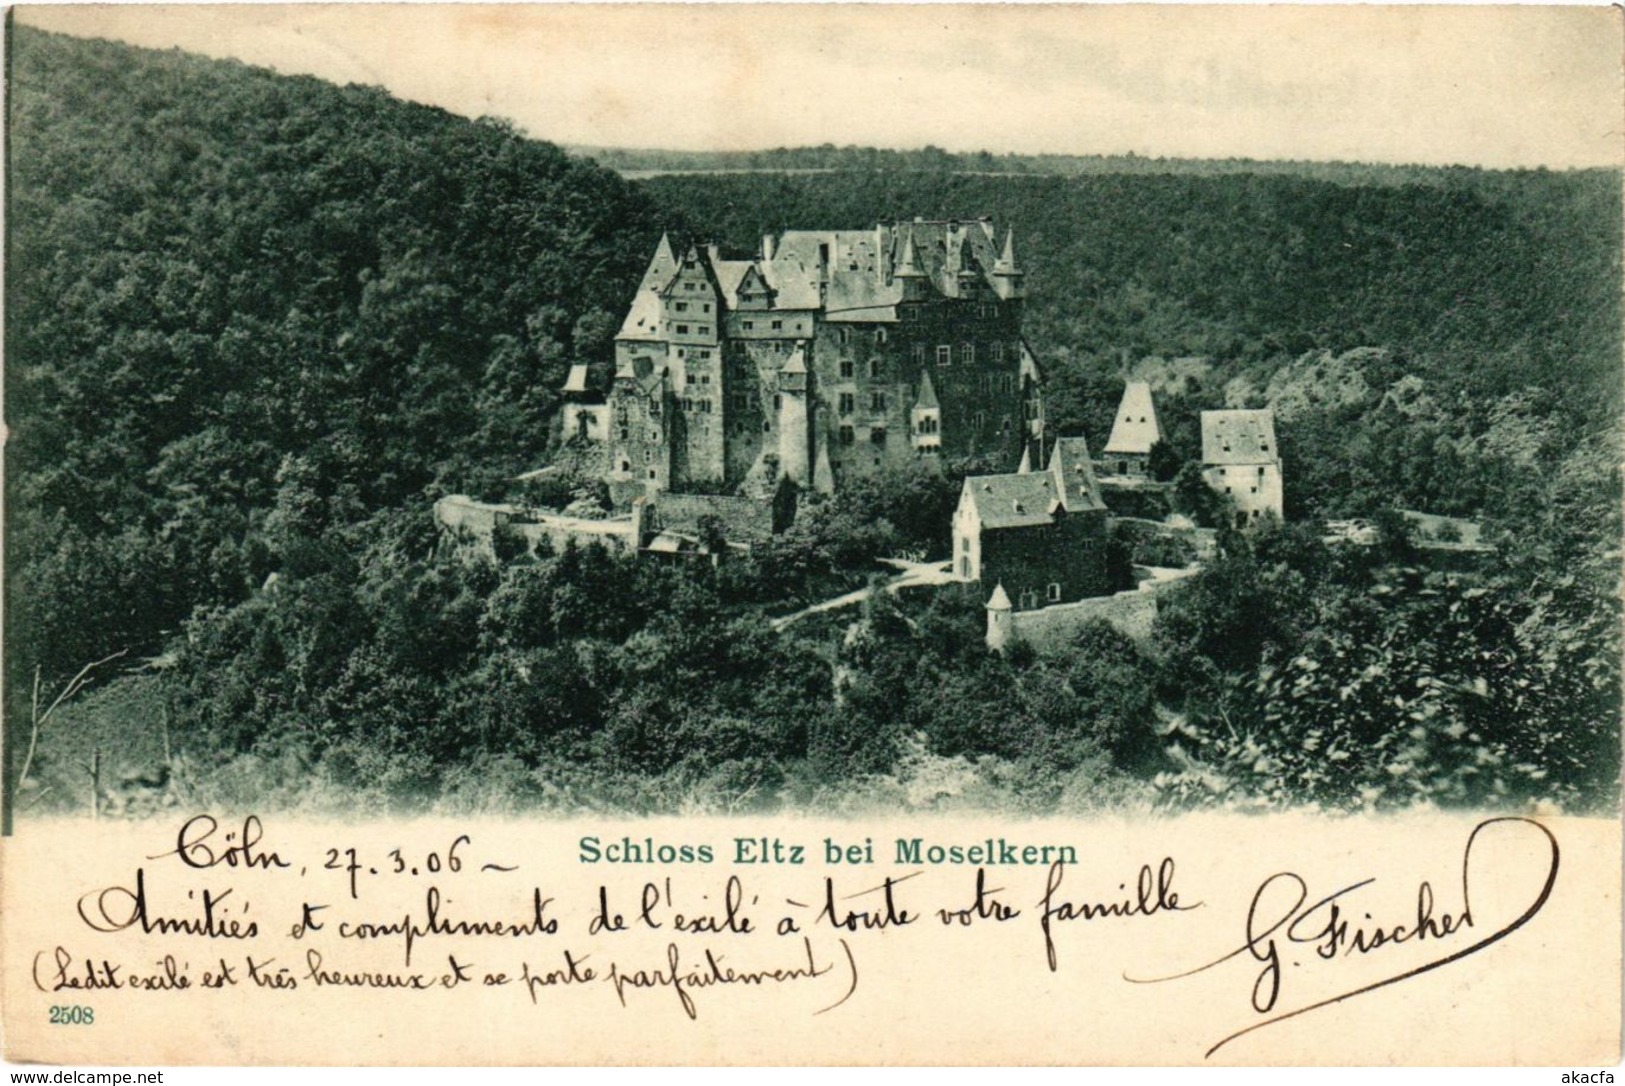 Schloss Eltz bei Moselkern
Cöln, 27.3.06 –
Amitiés et compliments de l'exilé à toute votre famille
(Ledit exilé est très heureux et se porte parfaitement)
G. Fischer
2508
www.delcampe.net
akacfa